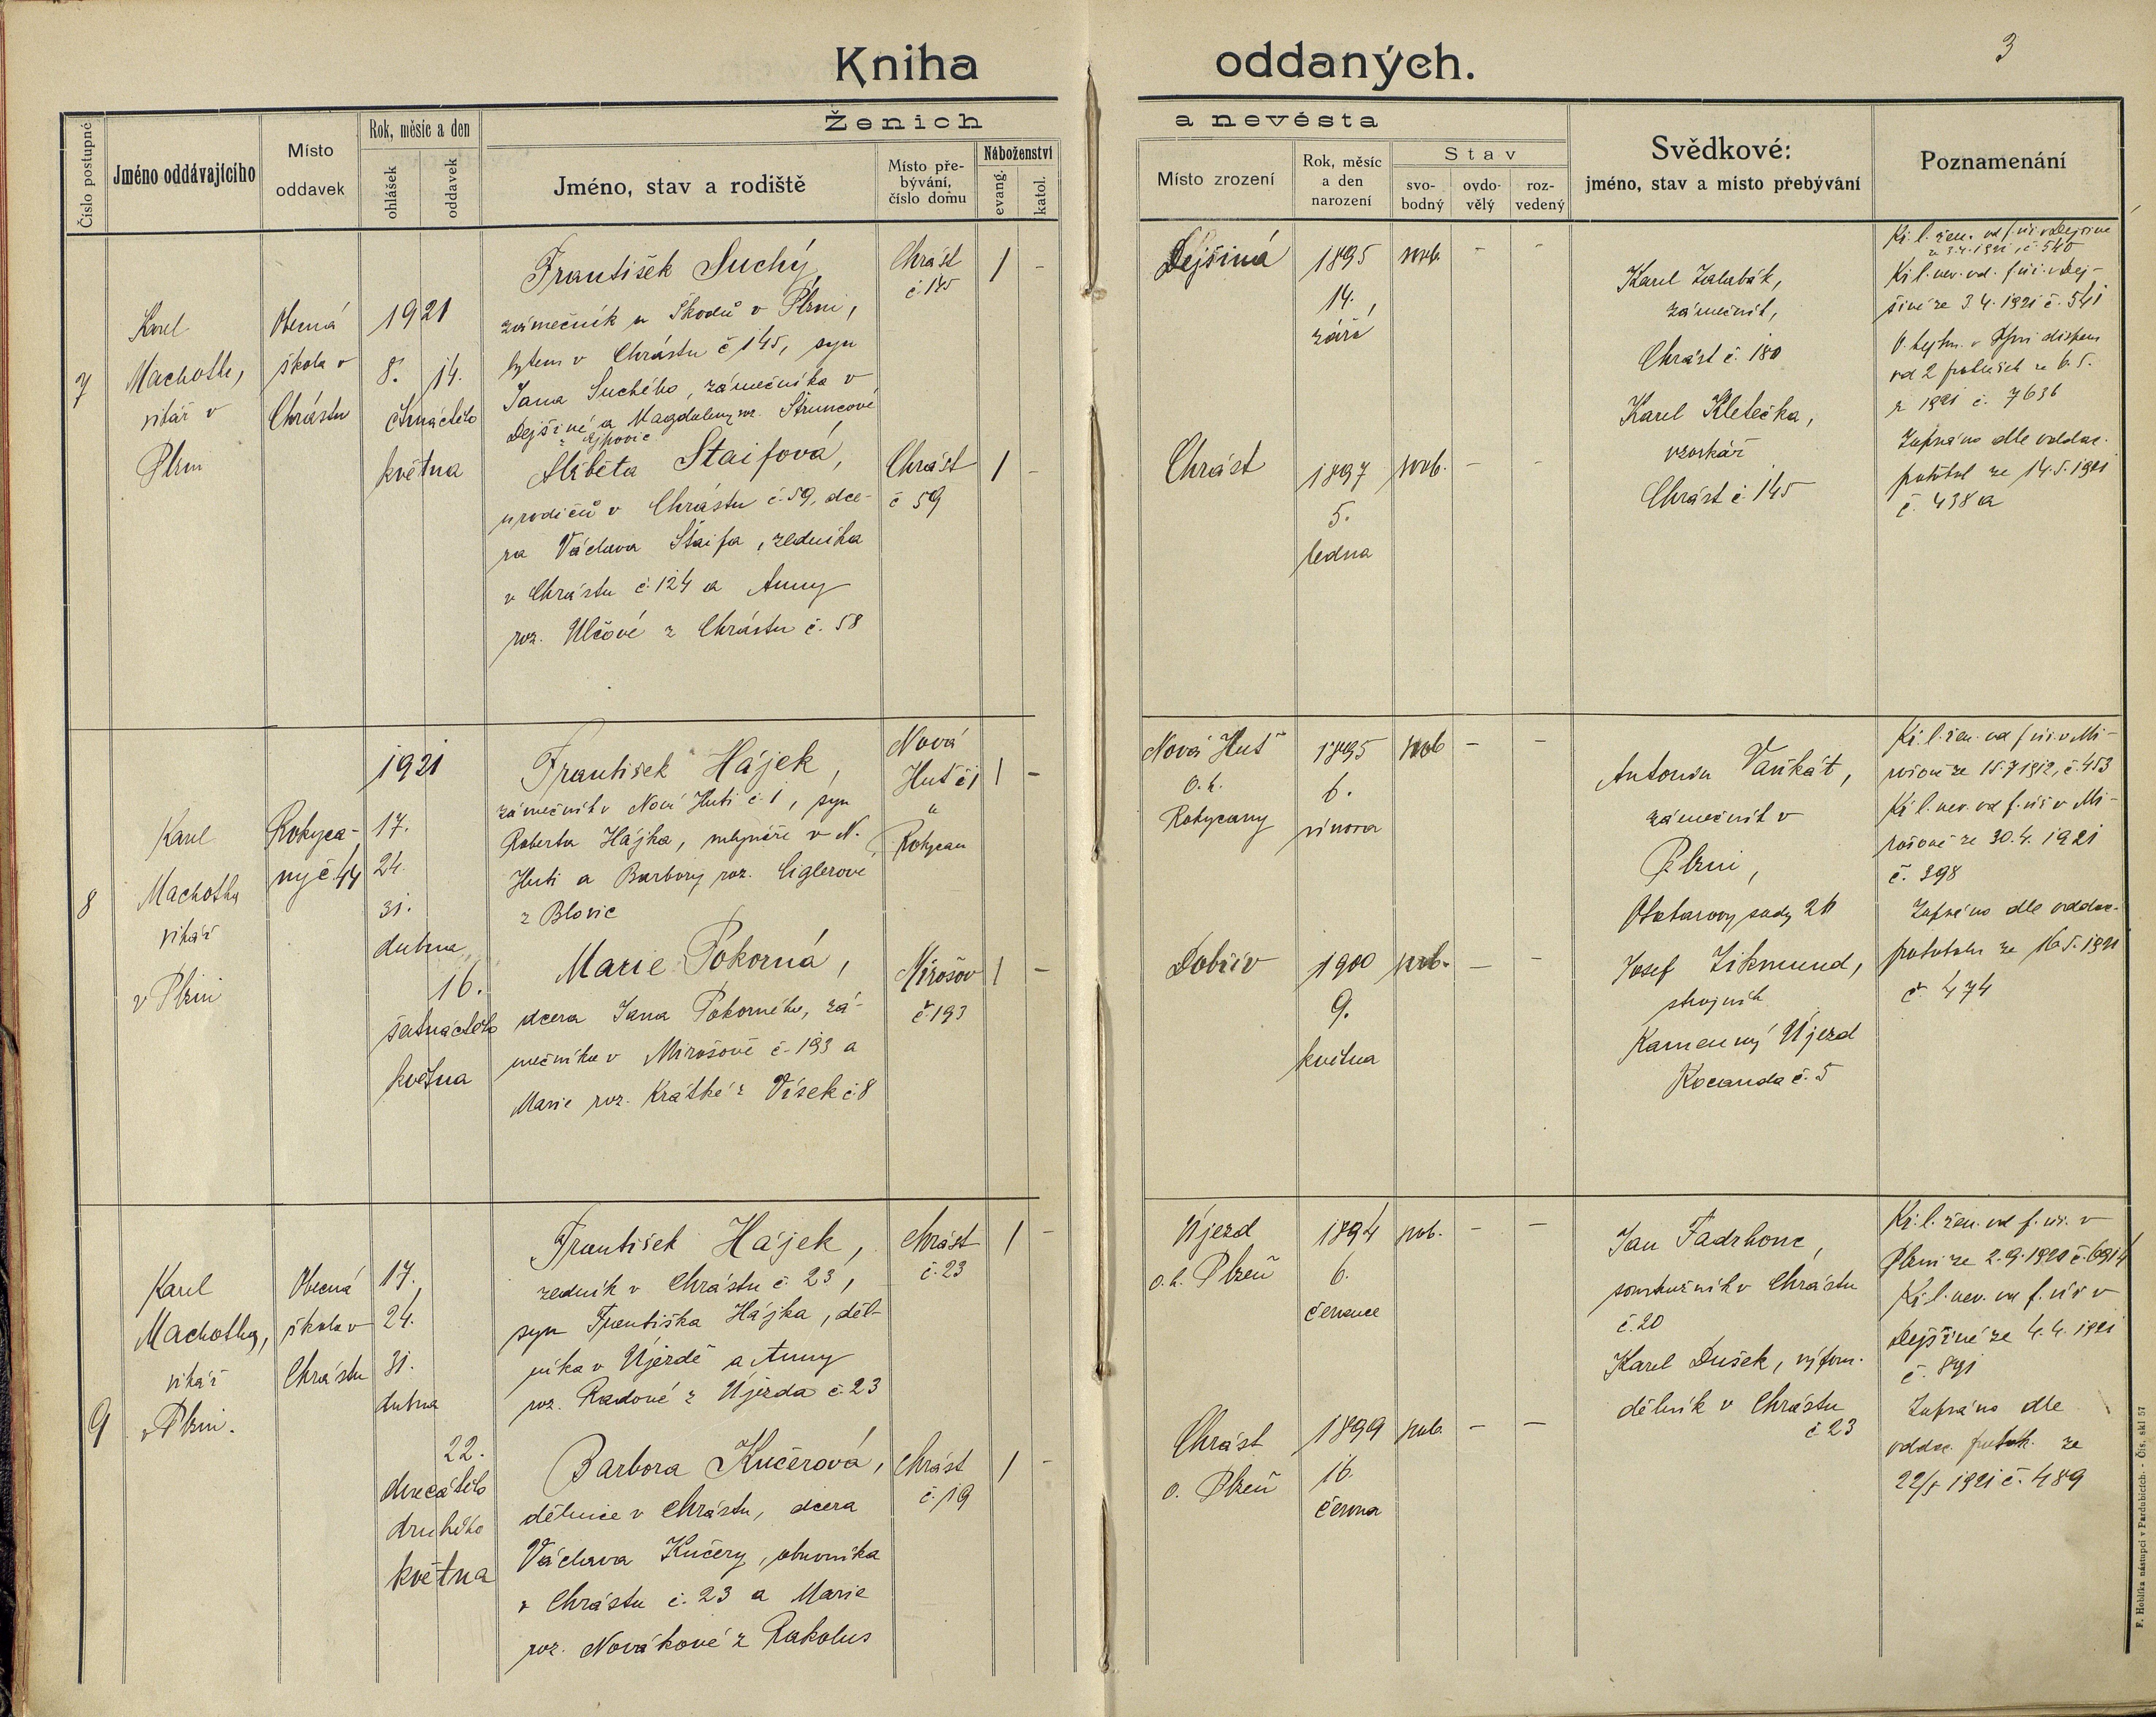 Kniha oddaných.
3
Číslo postupné
Jméno oddávajícího
Místo
oddavek
Rok, měsíc a den
ohlášek
oddavek
Ženich
Jméno, stav a rodiště
Místo pře-
bývání,
číslo domu
Náboženství
evang.
katol.
a nevěsta
Místo zrození
Rok, měsíc
a den
narození
Stav
svo-
bodný
ovdo-
vělý
roz-
vedený
Svědkové:
jméno, stav a místo přebývání
Poznamenání
7
Karel
Machotka,
vikář v
Plzni
Obecná
škola v
Chrástu
1921
8. 14.
čtrnáctého
května
František Suchý,
zámečník u Škodů v Plzni,
bytem v Chrástu č 145, syn
Jana Suchého, zámečníka v
Dejšině a Magdaleny roz. Štruncové
z Ejpovic
Chrást
č. 145
1 -
Alžběta Štaifová,
u rodičů v Chrástu č. 59, dce-
ra Václava Štaifa, zedníka
v Chrástu č. 124 a Anny
roz. Ulčové z Chrástu č. 58
Chrást
č 59
1 -
Dejšiná
1895
14.
září
svob. - -
Chrást
1897
5.
ledna
svob. - -
Karel Zalabák,
zámečník,
Chrást č. 180
Karel Kletečka,
vzorkář
Chrást č. 145
Kř. l. žen. od f. úř. v Dejšině
ze 3.4.1921, č. 540
Kř. l. nev. od. f. úř. v Dej-
šině ze 3.4.1921 č. 541
dispens
od 2 ohlášek ze 6. 5.
z 1921 č. 7636
Zapsáno dle oddac.
protokol ze 14.5.1921
č. 438a
8
Karel
Machotka
vikář
v Plzni
Rokyca-
ny č. 44
1921
17.
24.
31.
dubna
16.
šestnáctého
května
František Hájek,
zámečník v Nové Huti č. 1, syn
Roberta Hájka, mlynáře v N.
Huti a Barbory roz. Ciglerové
z Blovic
Nová
Huť č 1
u
Rokycan
1 -
Marie Pokorná,
dcera Jana Pokorného, zá-
mečníka v Mirošově č. 193 a
Marie roz. Krátké z Vísek č. 8
Mirošov
č. 193
1 -
Nová Huť
o. h.
Rokycany
1895
6.
února
svob - -
Dobřív
1900
9.
května
svob. - -
Antonín Vaňkát,
zámečník v
Plzni,
sady 26
Josef Zikmund,
strojník
Kamenný Újezd
Kocanda č. 5
Kř. l. žen. od f. úř. v Mi-
rošově ze 15.7 1912, č. 453
Kř. l. nev. od f. úř v Mi-
rošově ze 30.4. 1921
č. 398
Zapsáno dle oddac.
protokolu ze 16.5.1921
č. 474
9
Karel
Machotka,
vikář
v Plzni.
Obecná
škola v
Chrástu
17.
24.
31.
dubna
22.
dvacátého
druhého
května
František Hájek,
zedník v Chrástu č. 23,
syn Františka Hájka, děl-
níka v Újezdě a Anny
roz. Radové z Újezda č. 23
Chrást
č. 23
1 -
Barbora Kučerová,
dělnice v Chrástu, dcera
Václava Kučery, obuvníka
v Chrástu č. 23 a Marie
roz. Novákové z Rakolus
Chrást
č. 19
1 -
Újezd
o. h. Plzeň
1894
6.
července
svob. - -
Chrást
o. Plzeň
1899
16.
června
svob. - -
Jan Fadrhonc,
soustružník v Chrástu
č. 20
Karel Dušek, výpom.
dělník v Chrástu
č 23
Kř. l. žen. od f. úř. v
Plzni ze 2.9.1920 č. 6914
Kř. l. nev. od f. úř v
Dejšině ze 4.4. 1921
č. 891
Zapsáno dle
oddac. protok. ze
22/5 1921 č. 489
F. Hoblíka nástupci v Pardubicích. - Čís. skl 57